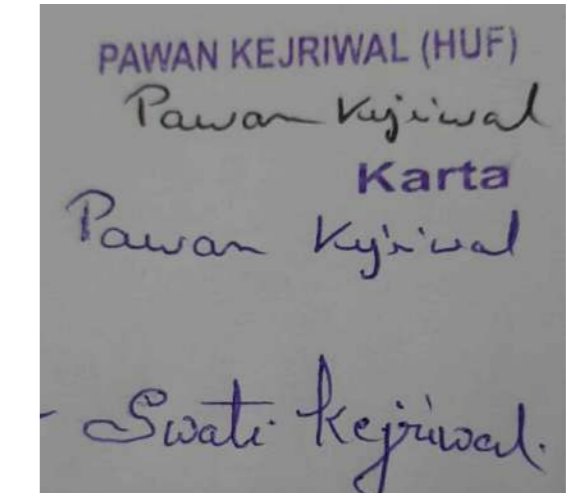 PAWAN KEJRIWAL (HUF)
Pawan Kejriwal
Karta
Pawan Kejriwal
- Swati Kejriwal.